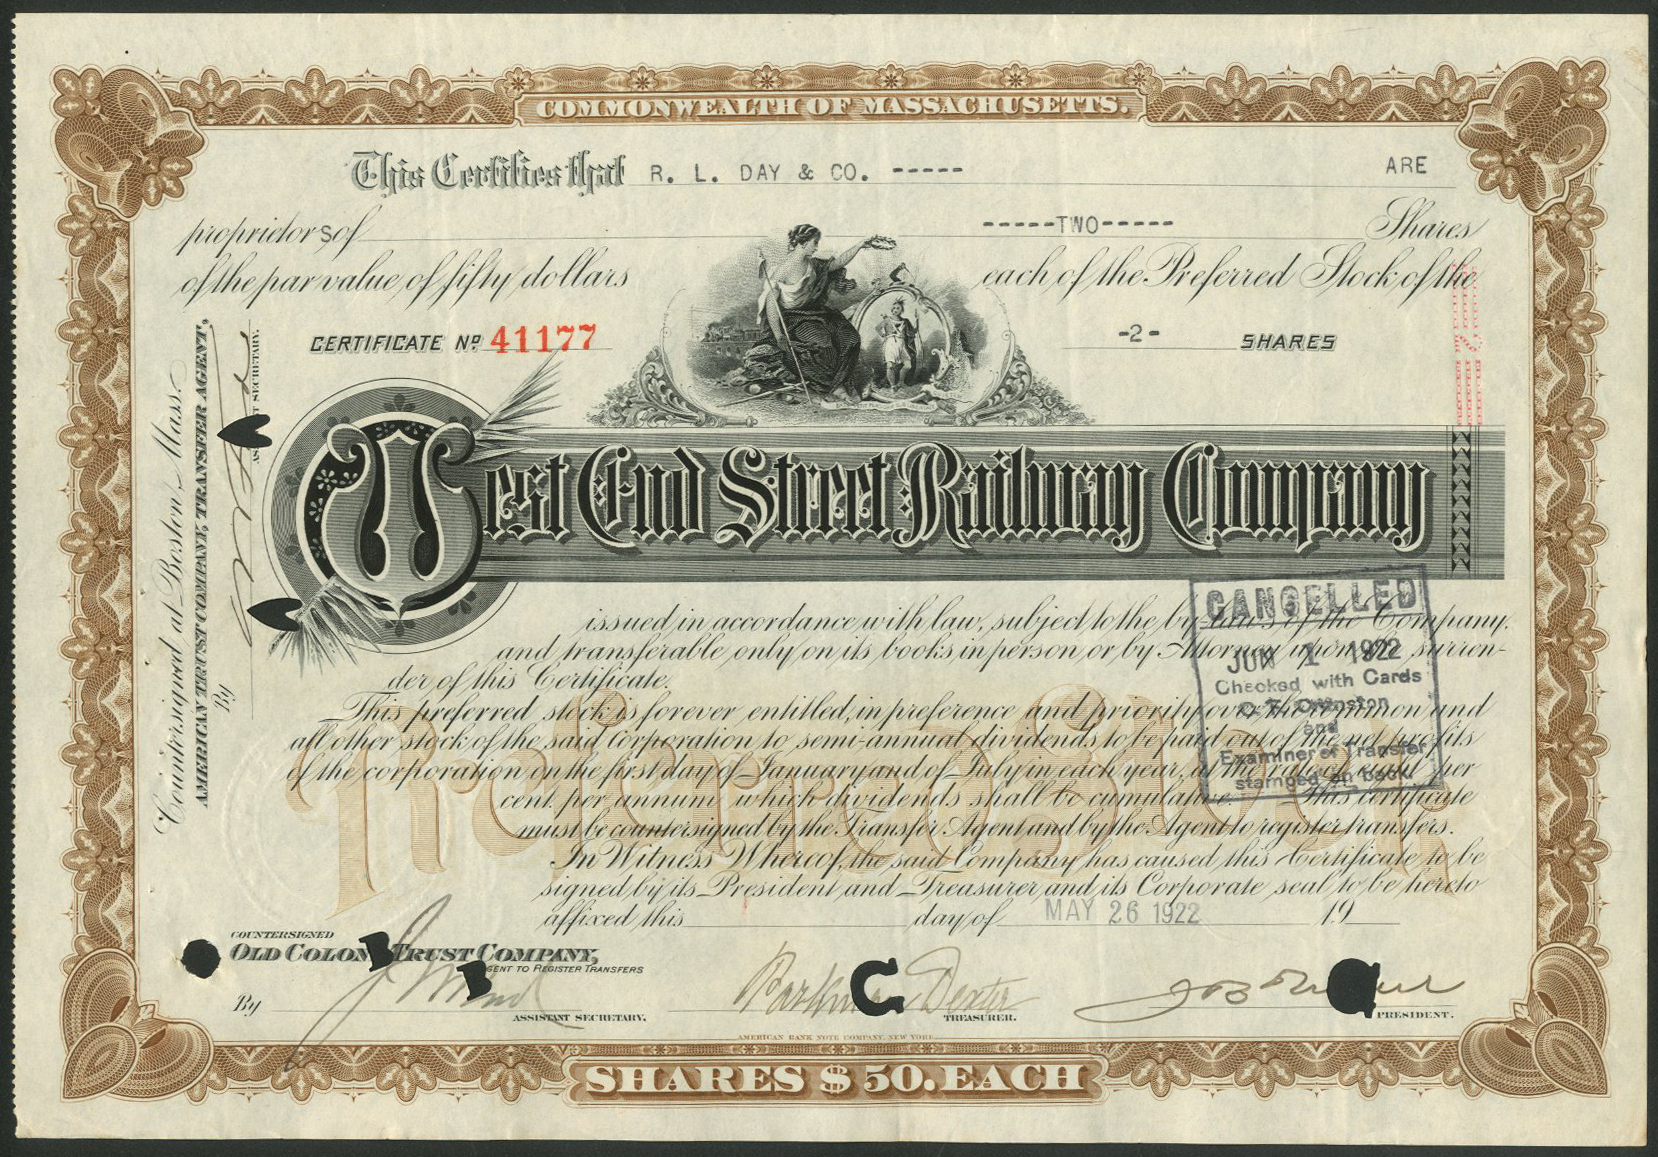 COMMONWEALTH OF MASSACHUSETTS.
This Certifies that R. L. DAY & CO. ----- ARE
proprietorS of -----TWO----- Shares
of the par value of fifty dollars each of the Preferred Stock of the
CERTIFICATE No 41177 -2- SHARES
West End Street Railway Company
issued in accordance with law, subject to the by-laws of the Company,
and transferable only on its books in person or by Attorney upon surren-
der of this Certificate.
This preferred stock is forever entitled, in preference and priority over the common and
all other stock of the said Corporation to semi-annual dividends to be paid out of the net profits
of the corporation on the first day of January and of July in each year, at the rate of eight per
cent. per annum, which dividends shall be cumulative. This certificate
must be countersigned by the Transfer Agent and by the Agent to register transfers.
In Witness Whereof, the said Company has caused this Certificate to be
signed by its President and Treasurer and its Corporate seal to be hereto
affixed this day of MAY 26 1922 19
Preferred Stock
CANCELLED
JUN 1 1922
Checked with Cards
and
Examiner of Transfer
stamped on back.
Countersigned at Boston, Mass.
AMERICAN TRUST COMPANY, TRANSFER AGENT.
By
ASS'T SECRETARY.
COUNTERSIGNED
OLD COLONY TRUST COMPANY,
AGENT TO REGISTER TRANSFERS
By
ASSISTANT SECRETARY.
Parkman Dexter
TREASURER.
PRESIDENT.
AMERICAN BANK NOTE COMPANY, NEW YORK.
SHARES $50. EACH